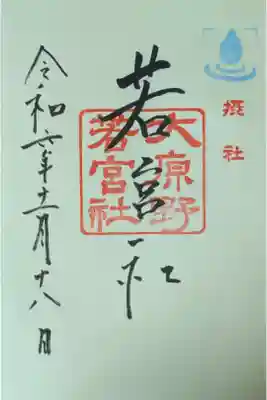 摂社
若宮社
大原野
若宮社
令和六年十二月十八日